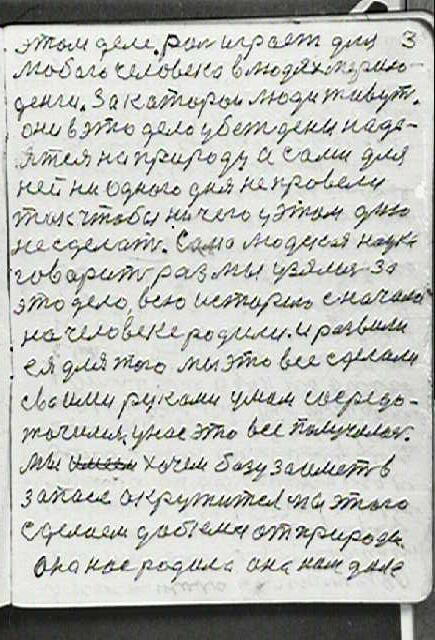 3
этом деле. рол играет для
любого человека в людях
денги. За каторои люди живут.
они в это дело убеждени наде-
ятся на природу а сами для
неи ни одного дня не провели
так чтобы ничего у этом дню
не сделат. Сама людская наука
говарит раз мы узялис за
это дело, всю историю сначала
на человеке родили. и развили
ея для того мы это все сделали
своими руками умом сосредо-
точилис, у нас это все получалос.
мы хочем базу заимет в
запасе окружится мы этого
сделаем добъемся от природи.
она нас родила она нам дала